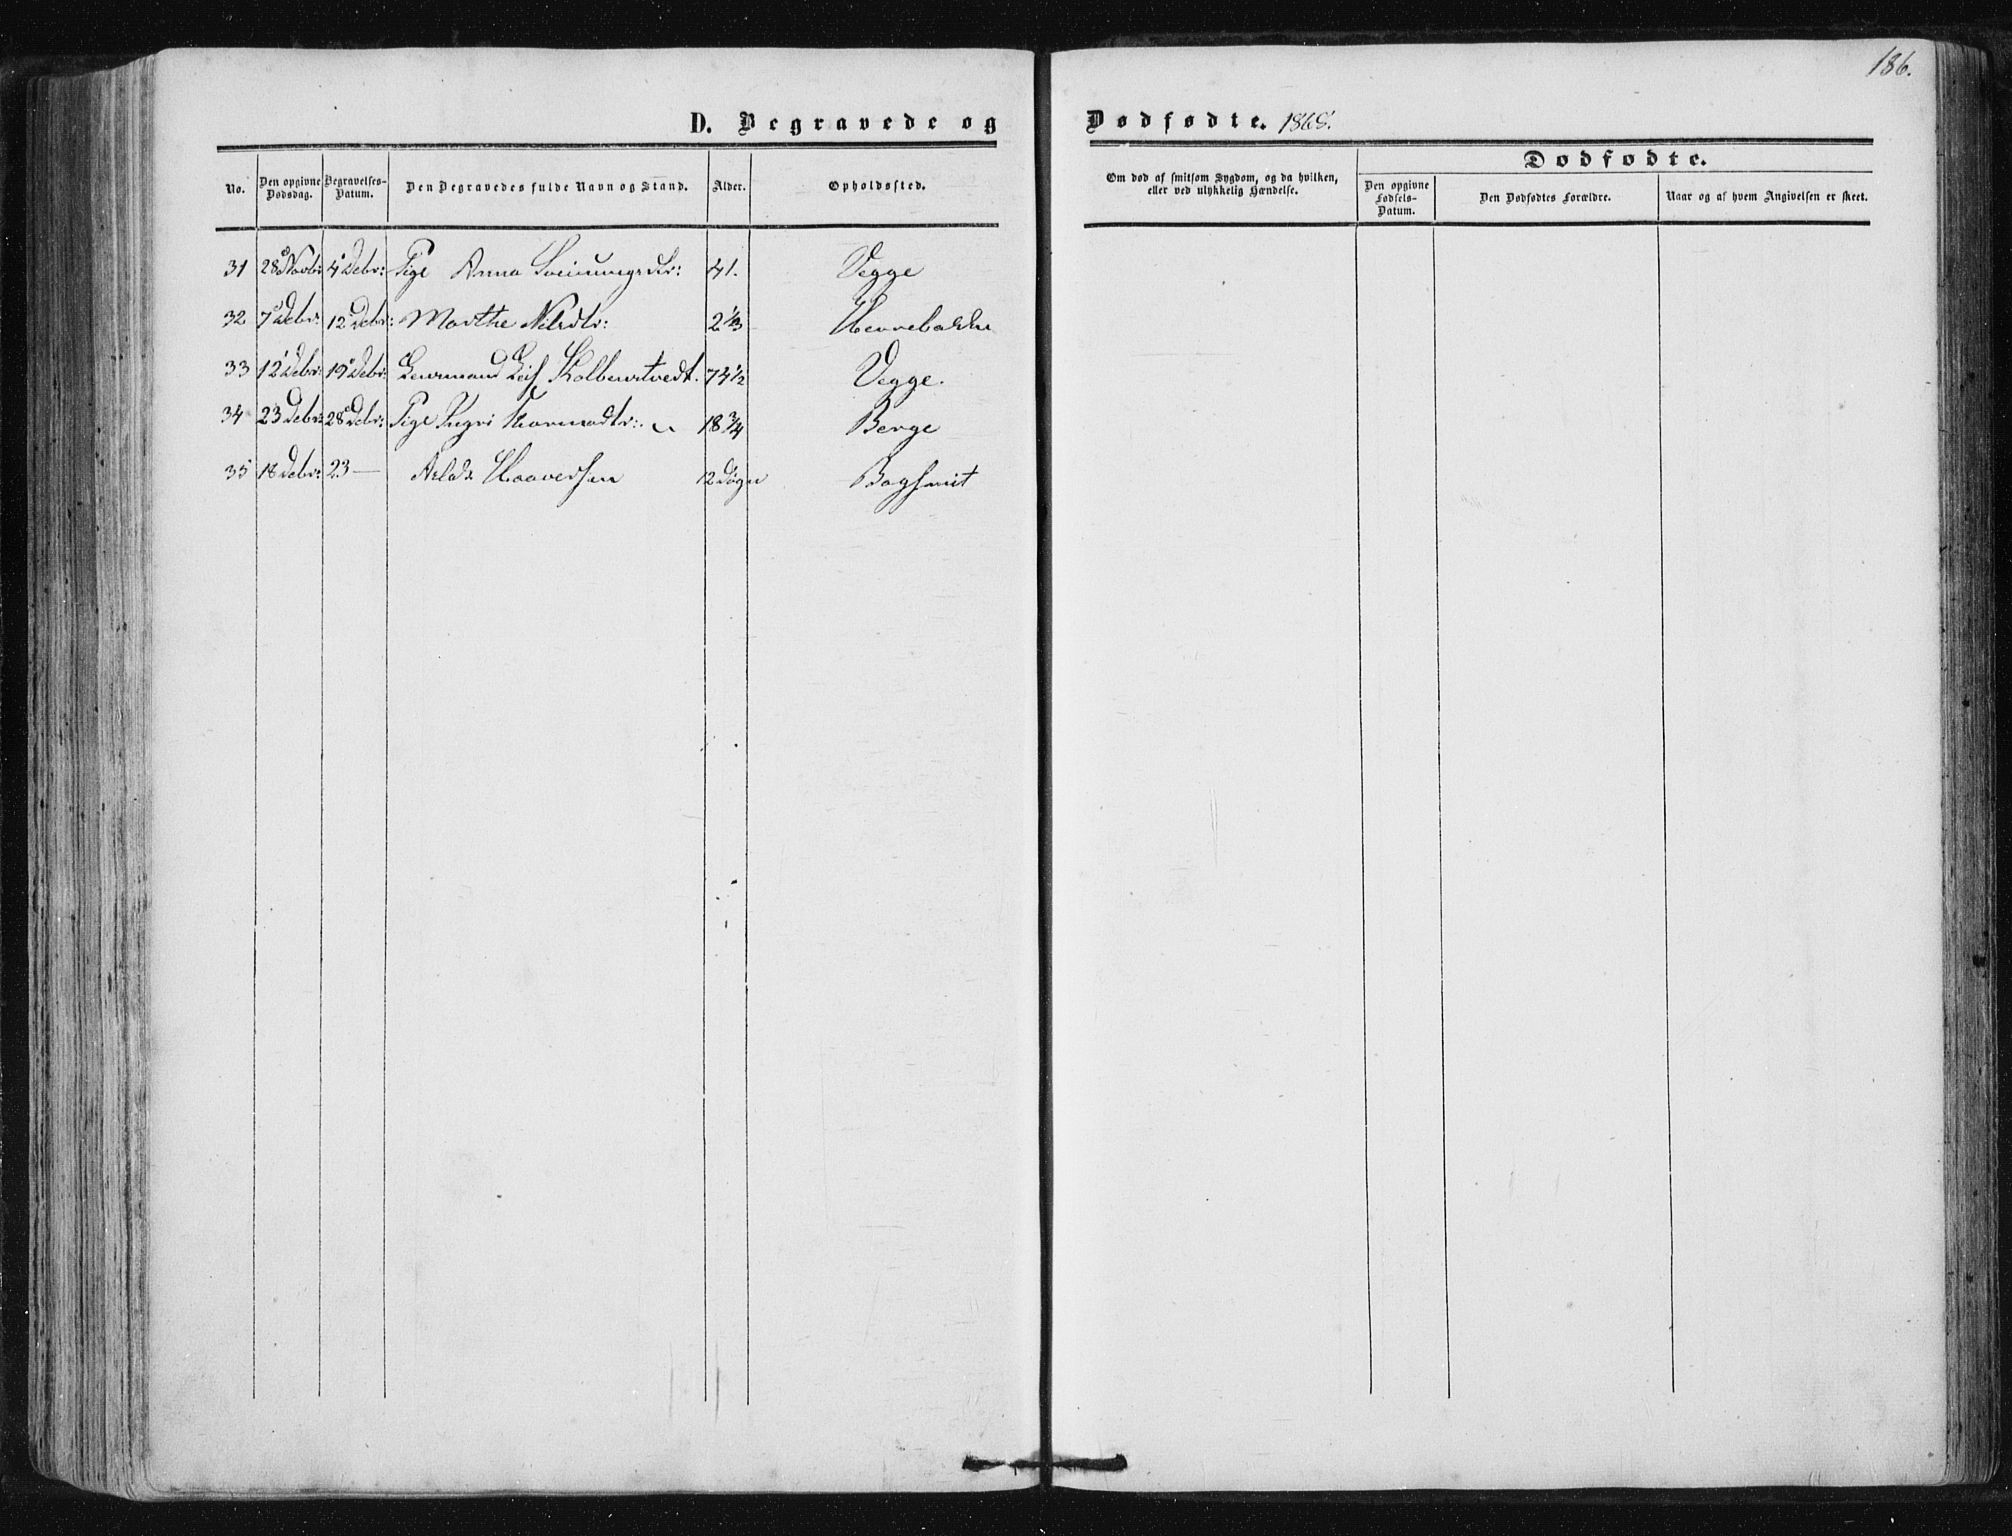 186.
D. Begravede og Dødfødte. 1865.
No. Den opgivne Dødsdag. Begravelses-Datum. Den Begravedes fulde Navn og Stand. Alder. Opholdssted. Om død af smitsom Sygdom, og da hvilken, eller ved ulykkelig Hændelse. Dødfødte.
Den opgivne Fødsels-Datum. Den Dødfødtes Forældre. Naar og af hvem Angivelsen er skeet.
31 28 Novbr: 4 Debr: Pige Anna Sveinungsdtr: 41. Vegge
32 7 Debr: 12 Debr: Marthe Nilsdtr: 2 1/3
33 12 Debr: 19 Debr: Leif 74 1/2 Vegge.
34 23 Debr: 28 Debr: Pige Ingri 18 3/4 Berge
35 18 Debr: 23 — Haaversen 12 Døgn